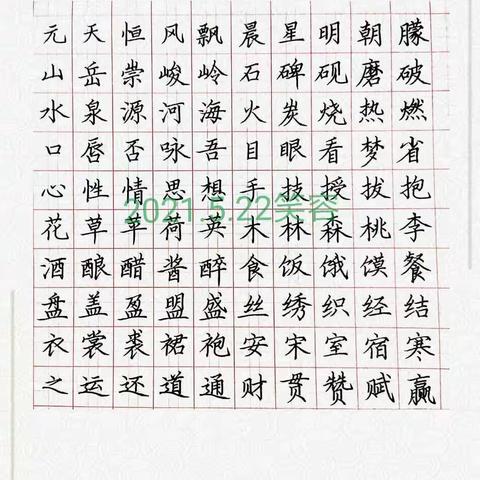 元天恒风飘晨星明朝朦
山岳崇峻岭石碑砚磨破
水泉源河海火炭烧热燃
口唇否咏吾目眼看梦省
心性情思想手技授拔抱
2021.5.22笑容
花草苹荷英木林森桃李
酒酿醋酱醉食饭饿馍餐
盘盖盈盟盛丝绣织经结
衣裳裘裙袍安宋室宿寒
之运还道通财贯赞赋赢